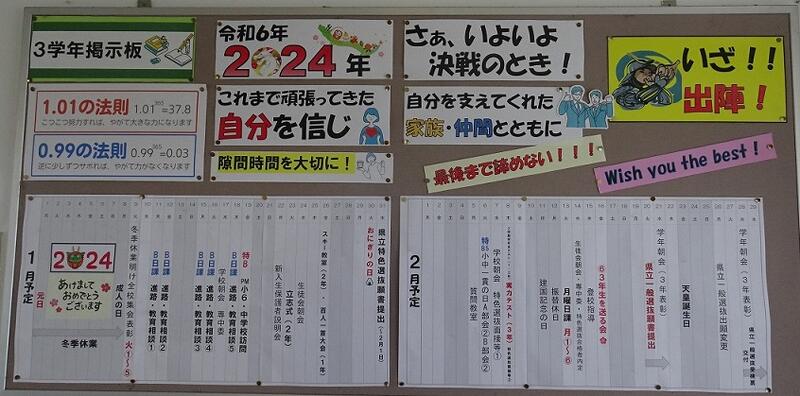 3学年掲示板
令和6年
2024年
さぁ、いよいよ
決戦のとき!
いざ!!
出陣!
1.01の法則 1.01^365=37.8
こつこつ努力すれば、やがて大きな力になります
0.99の法則 0.99^365=0.03
逆に少しずつサボれば、やがて力がなくなります
これまで頑張ってきた
自分を信じ
自分を支えてくれた
家族・仲間とともに
隙間時間を大切に!
最後まで諦めない!!!
Wish you the best!
1月予定
元日
2024
あけまして
おめでとう
ございます
冬季休業
成人の日
冬季休業明け全校集会表彰 火1~5
B日課 進路・教育相談①
B日課 進路・教育相談②
B日課 進路・教育相談3
B日課 進路・教育相談4
学校朝会 専中委
B日課 進路・教育相談5
特B PM小6・中学校訪問
新入生保護者説明会
立志式(2年)
生徒会朝会
スキー教室(2年) 百人一首大会(1年)
おにぎりの日
県立特色選抜願書提出(~2月5日)
2月予定
特B5 小中一貫の日A部会②B部会②
質問教室
学校朝会 特色選抜面接等①
実力テスト(3年)
建国記念の日
振替休日
月曜日課 月1~6
生徒会朝会・専中委・特色選抜合格者内定
登校指導
63年生を送る会
学年朝会(3年表彰)
県立一般選抜願書提出
天皇誕生日
県立一般選抜出願変更
学年朝会(3年表彰)
県立一般選抜受検票交付